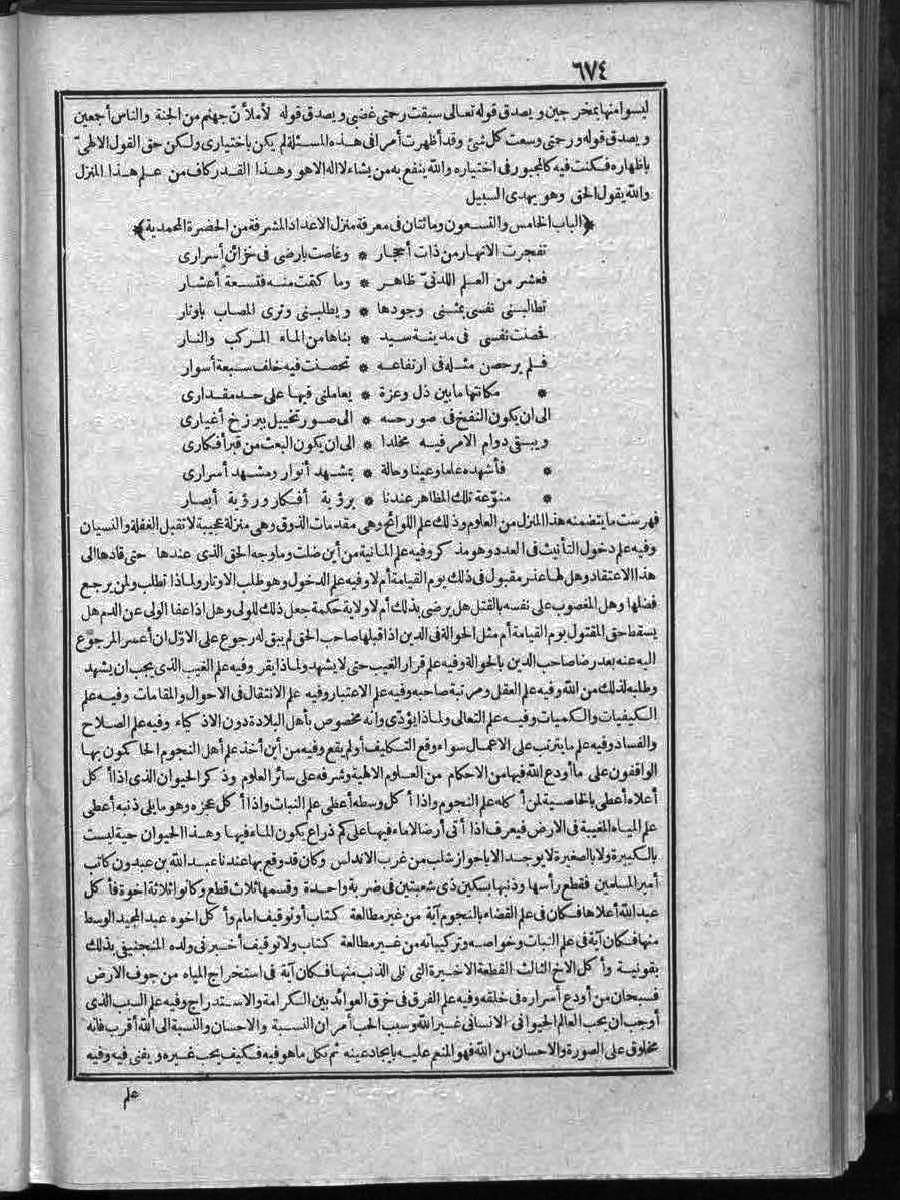 ٦٧٤
ليسوا منها بمخرجين ويصدق قوله تعالى سبقت رحمتى غضبى ويصدق قوله لأملأنّ جهنم من الجنة والناس أجمعين
ويصدق قوله ورحمتى وسعت كل شئ وقد أظهرت أمرا فى هذه المسئلة لم يكن باختيارى ولكن حق القول الالهىّ
باظهاره فكنت فيه كالمجبور فى اختياره والله ينفع به من يشاء لا اله الا هو وهذا القدر كاف من علم هذا المنزل
والله يقول الحق وهو يهدى السبيل
﴿الباب الخامس والتسعون ومائتان فى معرفة منزل الاعداد المشرفة من الحضرة المحمدية﴾
تفجرت الانهار من ذات أحجار * وغاصت بارضى فى خزائن أسرارى
فعشر من العلم اللدنىّ ظاهر * وما كتمت منه فتسعة أعشار
تطالبنى نفسى بمثنى وجودها * ويطلبنى وترى المصاب باوتار
فحصنت نفسى فى مدينة سيد * بناها من الماء المركب والنار
فلم ير حصن مثله فى ارتفاعه * تحصنت فيه خلف سبعة أسوار
* مكانتها ما بين ذل وعزة * يعاملنى فيها على حد مقدارى
الى ان يكون النفخ فى صور حسه * الى صور تخييل ببرزخ أغيارى
ويبقى دوام الامر فيه مخلدا * الى ان يكون البعث من قبر أفكارى
* فأشهده علما وعينا وحالة * بمشهد أنوار ومشهد أسرارى
* منوّعة تلك المظاهر عندنا * برؤية أفكار ورؤية أبصار
فهرست ما يتضمنه هذا المنزل من العلوم وذلك علم اللوائح وهى مقدمات الذوق وهى منزلة عجيبة لا تقبل الغفلة والنسيان
وفيه علم دخول التأنيث فى العدد وهو مذكر وفيه علم المانية من أين ضلت وما وجه الحق الذى عندها حتى قادها الى
هذا الاعتقاد وهل لها عذر مقبول فى ذلك يوم القيامة أم لا وفيه علم الدخول وهو طلب الاوتار ولماذا تطلب ولمن يرجع
فضلها وهل المغصوب على نفسه بالقتل هل يرضى بذلك أم لا ولاية حكمة جعل ذلك للولى وهل اذا عفا الولى عن الدم هل
يسقط حق المقتول يوم القيامة أم مثل الحوالة فى الدين اذا قبلها صاحب الحق لم يبق له رجوع على الاوّل ان أعسر المرجوع
اليه عنه بعد رضا صاحب الدين بالحوالة وفيه علم قرار الغيب حتى لا يشهد ولماذا يقر وفيه علم الغيب الذى يجب ان يشهد
وطلبه لذلك من الله وفيه علم العقل ومرتبة صاحبه وفيه علم الاعتبار وفيه علم الانتقال فى الاحوال والمقامات وفيه علم
الكيفيات والكميات وفيه علم التعالى ولماذا يؤدّى وانه مخصوص بأهل البلادة دون الاذكياء وفيه علم الصلاح
والفساد وفيه علم ما يترتب على الاعمال سواء وقع التكليف أو لم يقع وفيه من أين أخذ علم أهل النجوم الحاكمون بها
الواقفون على ما أودع الله فيها من الاحكام من العلوم الالهية وشرفه على سائر العلوم وذكر الحيوان الذى اذا أكل
أعلاه أعطى بالخاصية لمن أكله علم النجوم واذا أكل وسطه أعطى علم النبات واذا أكل عجزه وهو ما يلى ذنبه أعطى
علم المياه المغيبة فى الارض فيعرف اذا أتى أرضا لا ماء فيها على كم ذراع يكون الماء فيها وهذا الحيوان حية ليست
بالكبيرة ولا بالصغيرة لا يوجد الا باحواز شلب من غرب الاندلس وكان قد وقع بها عندنا عبد الله بن عبدون كاتب
أمير المسلمين فقطع رأسها وذنبها بسكين ذى شعبتين فى ضربة واحدة وقسمها ثلاث قطع وكانوا ثلاثة اخوة فأكل
عبد الله أعلاها فكان فى علم القضاء بالنجوم آية من غير مطالعة كتاب أو توقيف امام وأكل اخوه عبد المجيد الوسط
منها فكان آية فى علم النبات وخواصه وتركيباته من غير مطالعة كتاب ولا توقيف أخبرنى ولده المنجنيقى بذلك
بقونية وأكل الاخ الثالث القطعة الاخيرة التى تلى الذنب منها فكان آية فى استخراج المياه من جوف الارض
فسبحان من أودع أسراره فى خلقه وفيه علم الفرق فى خرق العوائد بين الكرامة والاستدراج وفيه علم السبب الذى
أوجب ان يحب العالم الحيوانى الانسانى غير الله وسبب الحب أمران النسبة والاحسان والنسبة الى الله أقرب فانه
مخلوق على الصورة والاحسان من الله فهو المنعم عليه بايجاد عينه ثم بكل ما هو فيه فكيف يحب غيره ويفنى فيه وفيه
علم